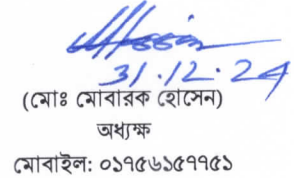 31.12.24
(মোঃ মোবারক হোসেন)
অধ্যক্ষ
মোবাইল: ০১৭৫৬১৫৭৭৫১